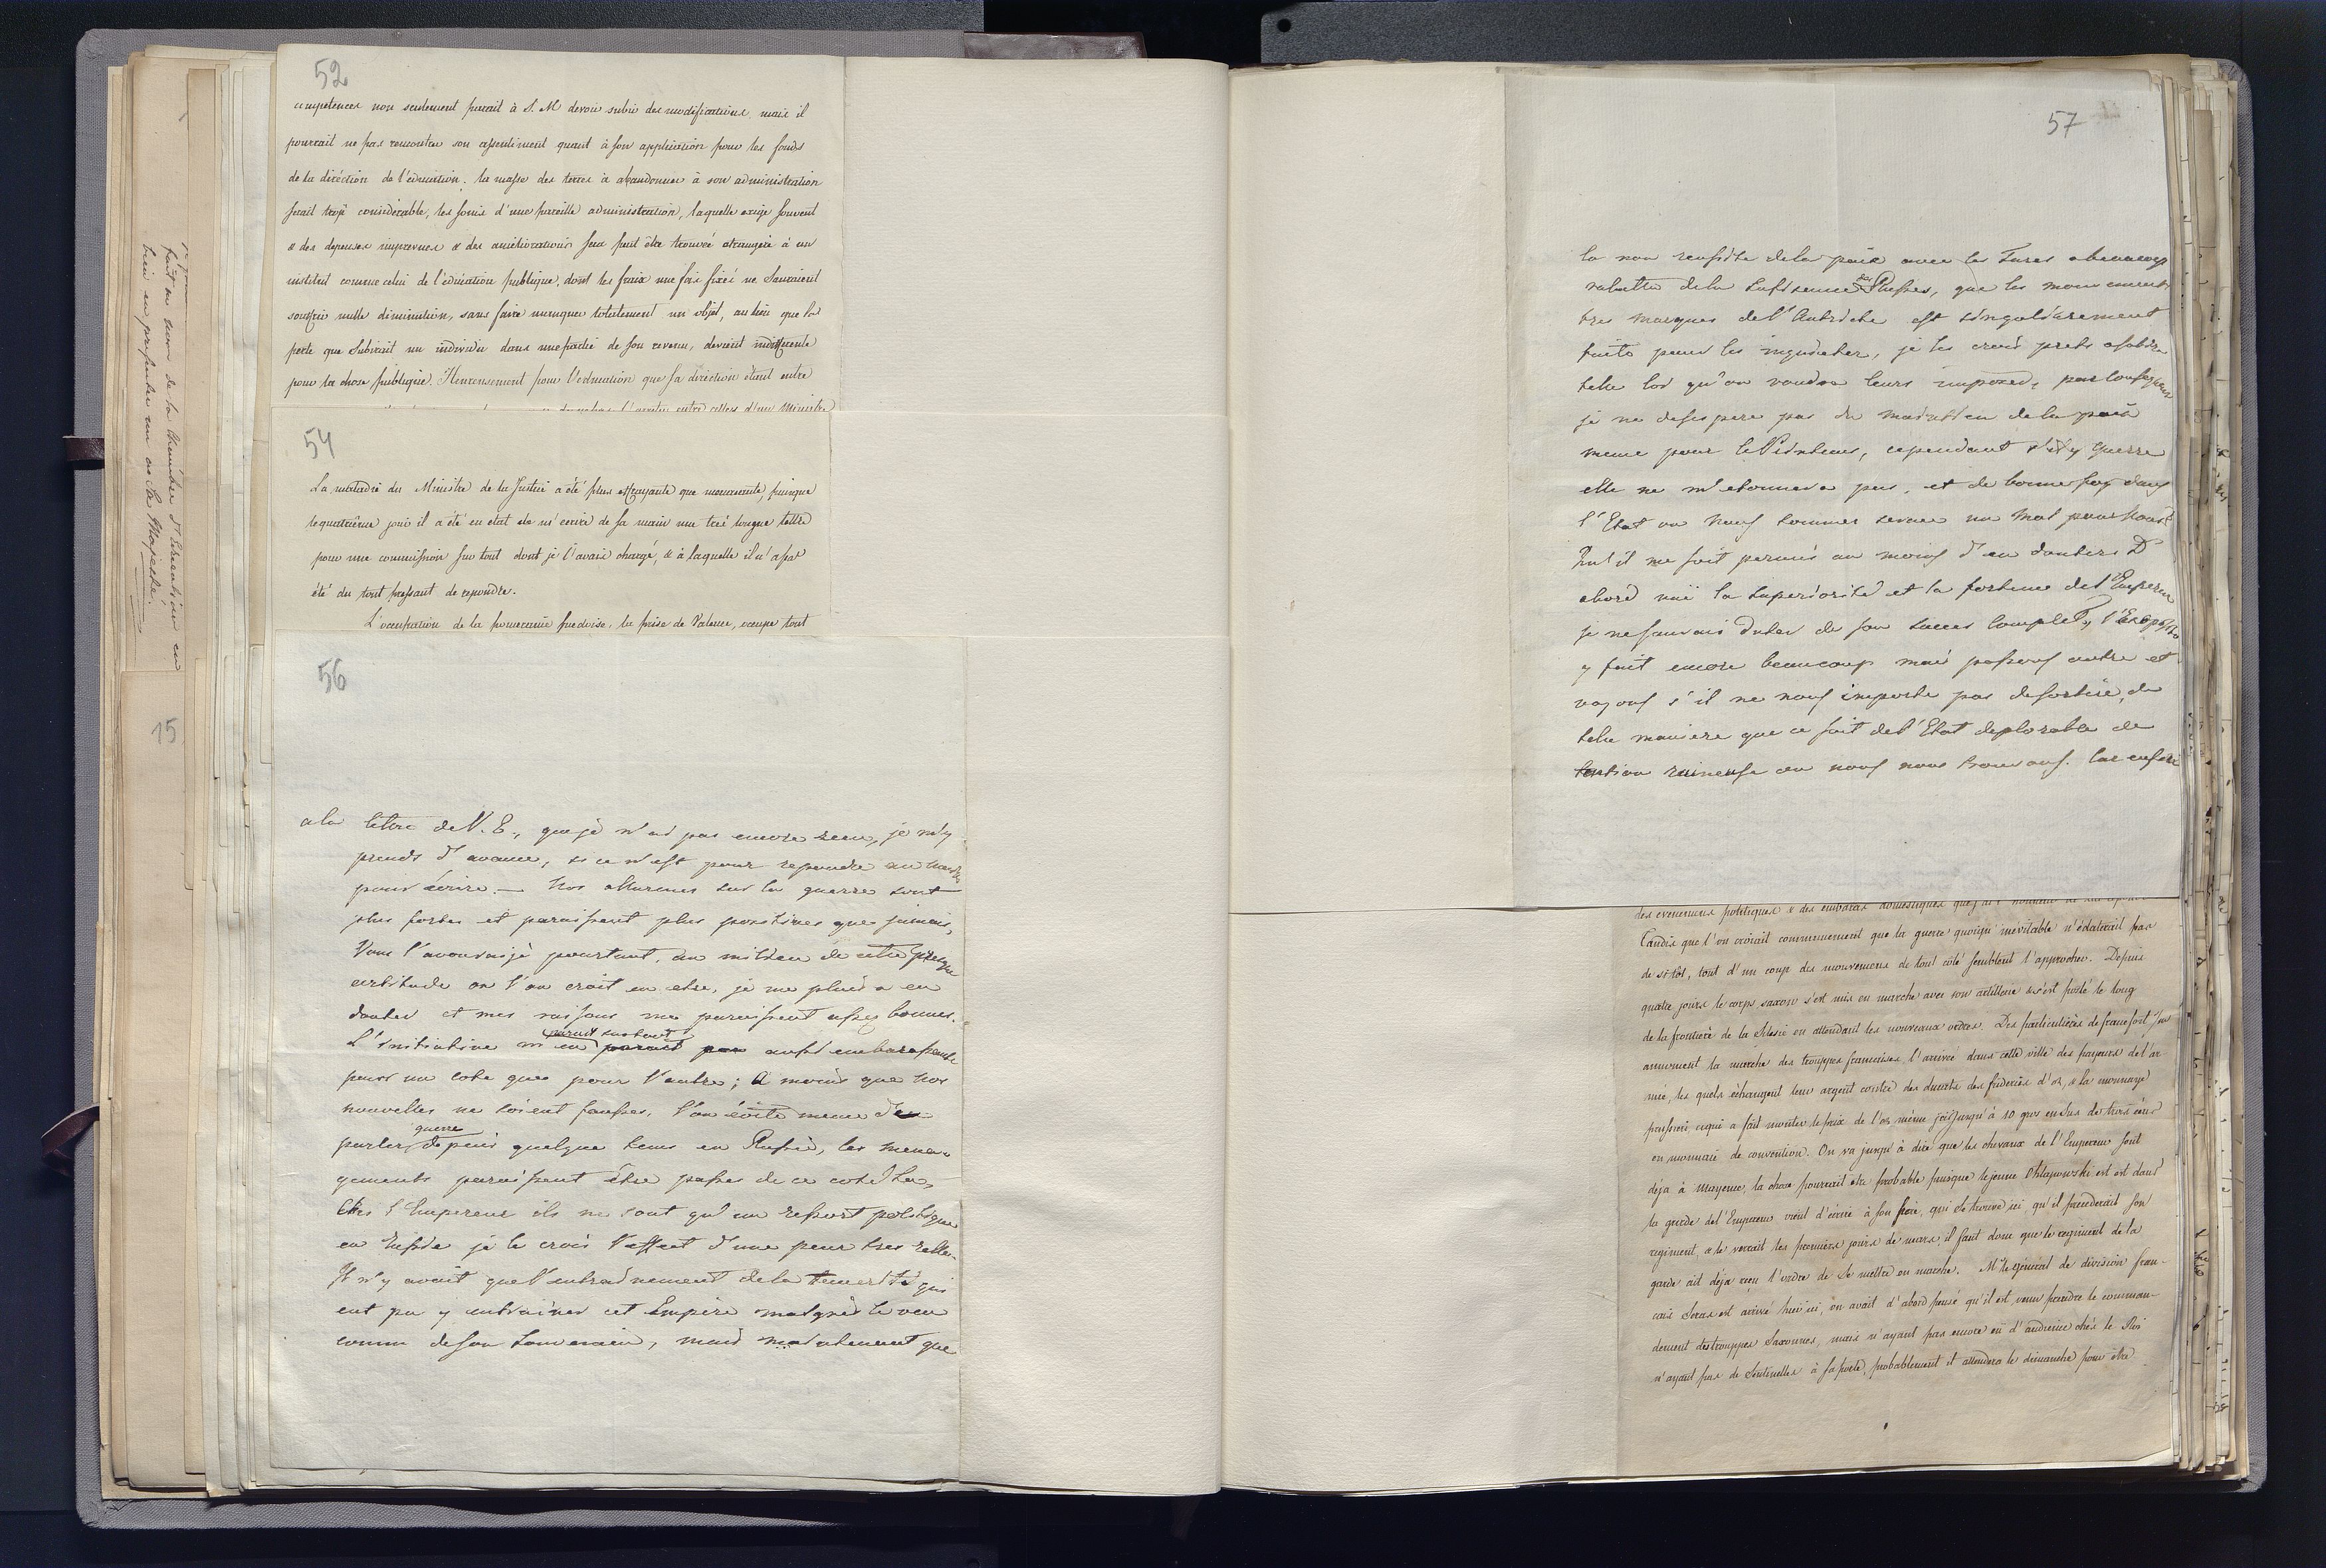 52
competences non seulement parait à S. M devoir subir des modifications, mais il
pourrait ne pas rencontrer son assentiment quant à son application pour les fonds
de la diréction de l'education. la masse des terres à abandonner à son administration
serait trop considérable, les soins d'une pareille administration, laquelle exige souvent
& des depenses imprevues & des améliorations sera peut être trouvé etrangère à un
institut comme celui de l'education publique, dont les fraix une fois fixés ne sauraient
souffrir nulle diminution, sans faire manquer totalement un objet, au lieu que la
perte que subirait un individu dans une partie de son revenu, devient indifferente
pour la chose publique. Heureusement pour l'education que sa direction étant entre
l'autre entre celles d'un Ministre
54
La maladie du Ministre de la Justice a été plus effrayante que mauvaise, puisque
le quatrième jour il a été en etat de m'ecrire de sa main une trés longue lettre
pour une commission sur tout dont je l'avais chargé, & à laquelle il n'a pas
été du tout pressant de repondre.
L'occupation de la pomeranie suedoise, la prise de Valence, occupe tout
56
a la lettre de V. E., que je n'ai pas encore recue, je m'y
prends d'avance, si ce n'est pour repondre au moins
pour écrire. — Nos allarmes sur la guerre sont
plus fortes et paraissent plus positives que jamais,
Vous l'avouraije pourtant, au milieu de cette presque
certitude ou l'on croit en etre, je me plais a en
douter et mes raisons me paraissent assez bonnes.
parait surtout
L'initiative m'en parait aussi embarassante
pour un coté que pour l'autre; A moins que nos
nouvelles ne soient fausses, l'on évite meme d'en
guerre
parler, depuis quelque tems en Russie, les mena-
gements paraissent être passés de ce coté la,
Chés l'Empereur ils ne sont qu'un ressort politique
en Russie je le crois l'effet d'une peur tres réelle.
Il n'y avait que l'entrainement de la temerité qui
eut pu y entrainer cet Empire malgré le voeu
connu de son Souverain, mais maintenant que
57
la non reussite de la paix avec les Turcs a beaucoup
rabattu de la suffisance des Russes, que les mouvements
tres marqués de l'Autriche est singulièrement
faite pour les inquieter, je les crois prets a subir
telle loi qu'on voudra leurs imposer, par consequent
je ne desespere pas du maintien de la paix
meme pour le Printems, cependant s'il y guerre
elle ne m'etonnera pas, et de bonne foy dans
l'Etat ou nous sommes serace un mal pour nous?
Qu'il me soit permis au moins d'en douter. D'
abord vuë la superiorité et la fortune de l'Empereur
je ne saurais douter de son succes complet,
y fait encore beaucoup mais passons outre et
voyons s'il ne nous importe pas de sortir, de
telle maniere que ce soit de l'Etat deplorable de
ruineuse ou nous nous trouvons. Car enfin
des evenemens politiques & des embaras domestiques que j'ai l'honneur de
Tandis que l'on croiait communement que la guerre quoique inévitable n'éclaterait pas
de si tôt, tout d'un coup des mouvemens de tout côté semblent l'approcher. Depuis
quatre jours le corps saxon s'est mis en marche avec son artillerie & s'est porté le long
de la frontière de la Silesie en attendant les nouveaux ordres. Des particulières de francfort s/m
annoncent la marche des trouppes françaises l'arrivé dans cette ville des payeurs de l'ar
mée, les quels échangent leur argent contre des ducats des frideries d'or, & la monnaye
prussiene, ce qui a fait monter le prix de l'or même jusqu'à 10 gros en sus de trois écus
en monnaie de convention. On va jusqu'à dire que les chevaux de l'Empereur sont
déja à Mayence, la chose pourrait etre probable puisque le jeune Chlapowski est est dans
la garde de l'Empereur vient d'écrire à son frère, qui se trouve ici, qu'il joinderait son
regiment, & le verrait les premiers jours de mars, il faut donc que le regiment de la
garde ait déja reçu l'ordre de se mettre en marche. Mr le général de division fran-
cais Seras est arrivé hier ici, on avait d'abord pensé qu'il est venu prendre le comman-
dement des trouppes Saxonnes, mais n'ayant pas encore eû d'audience chés le Roi
n'ayant pas de Sentinelles à sa porte, probablement il attendra le dimanche pour être
fait au sein de la Chambre d'Education en
lieu en presenter un a Sa Majesté.
15